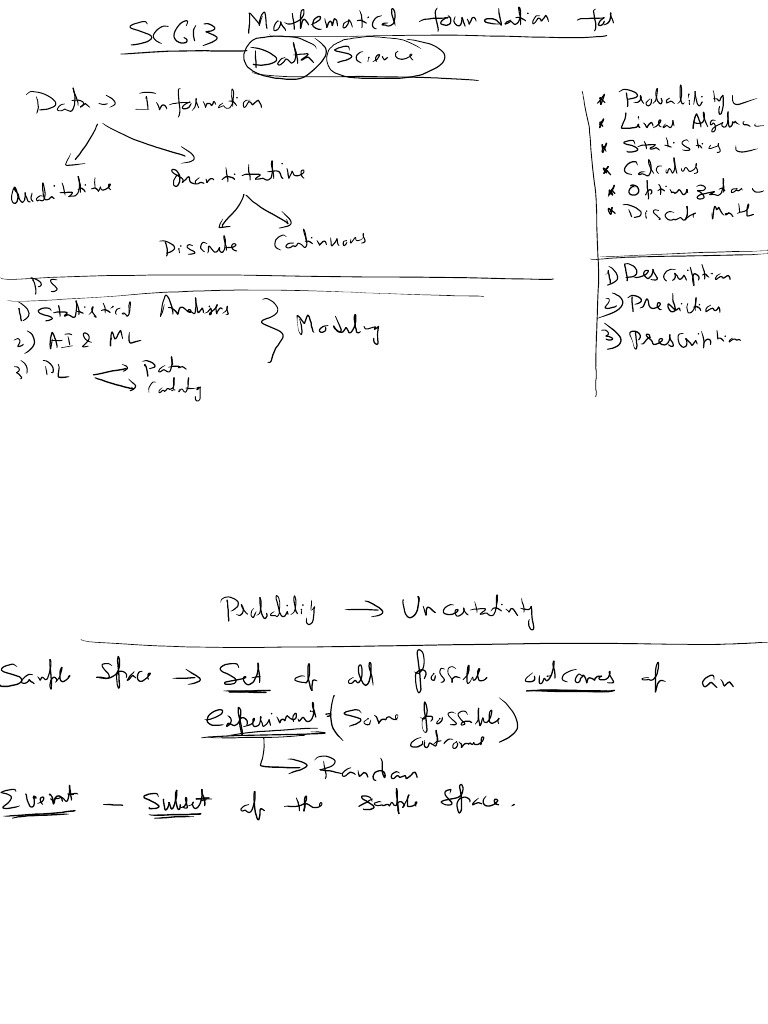 SC613 Mathematical foundation for
Data Science
Data → Information
Qualitative
Quantitative
Discrete
Continuous
* Probability ✓
* Linear Algebra
* Statistics ✓
* Calculus
* Optimization
* Discrete Math
1) Description
2) Prediction
3) Prescription
1) Statistical Analysis
2) AI & ML
3) DL
Modeling
Probability → Uncertainty
Sample Space → Set of all possible outcomes of an
experiment (Some possible
outcome)
Random
Event – Subset of the sample space.